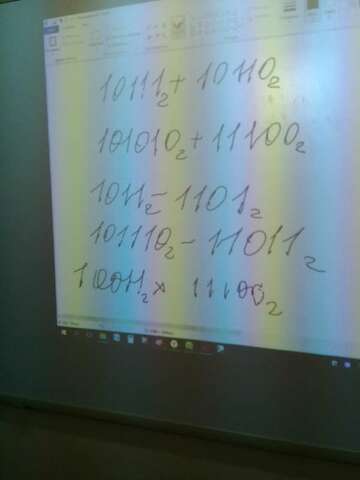 10111₂ + 10110₂
101010₂ + 11100₂
1011₂ - 1101₂
101110₂ - 11011₂
10011₂ × 11100₂